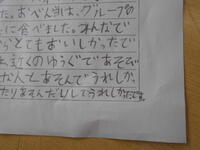 た。おべん当は、グループの
に食べました。みんなで
らとてもおいしかったで
、近くのゆうぐであそび
な人とあそんでうれしか
たりあそんだりしてうれしかったです。